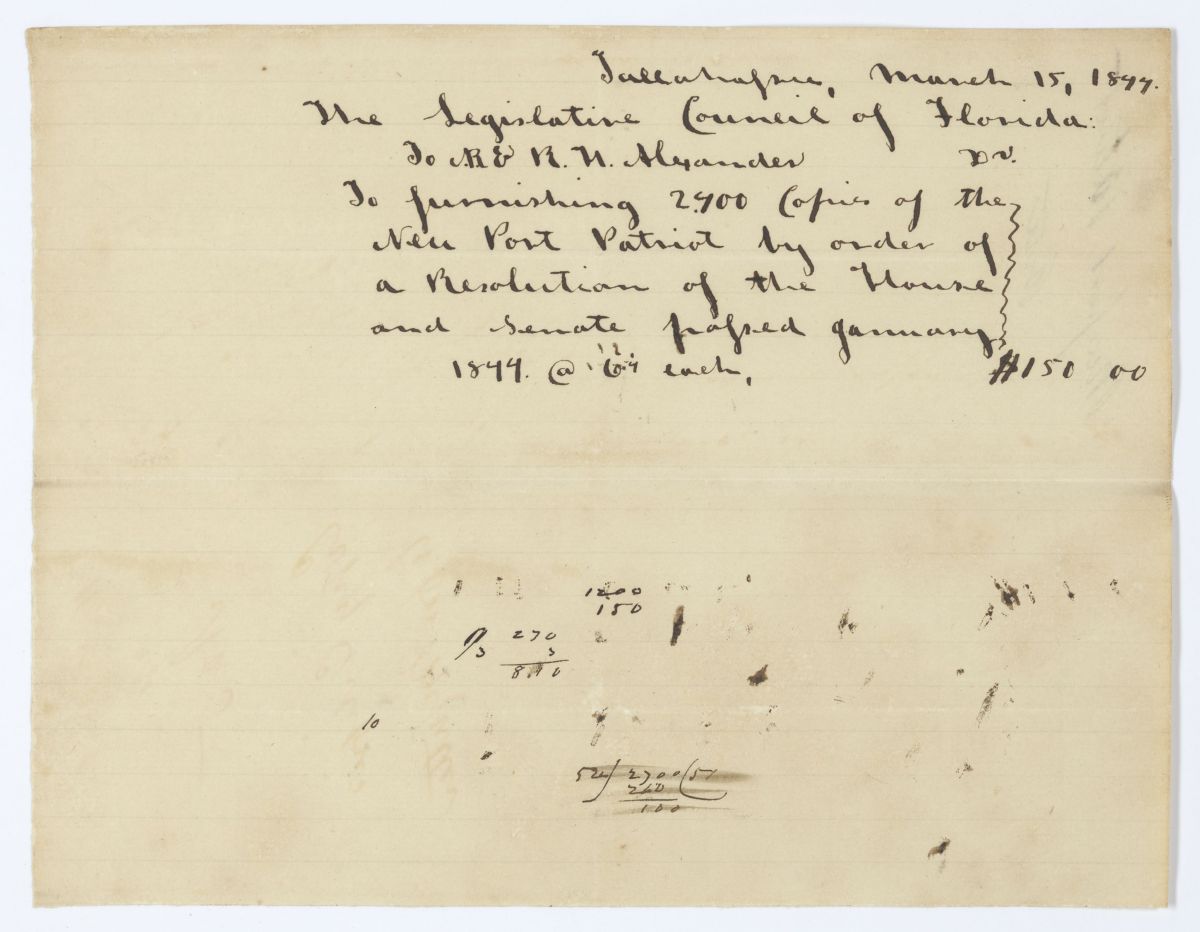 Tallahassee, March 15, 1844.
The Legislative Council of Florida:
To R. & R. H. Alexander Dr.
To furnishing 2,400 Copies of the
New Port Patriot by order of
a Resolution of the House
and Senate passed January
1844. @ 6¼ each, $150 00
1200
150
270
3 3
810
10
52) 2700 (51
260
100